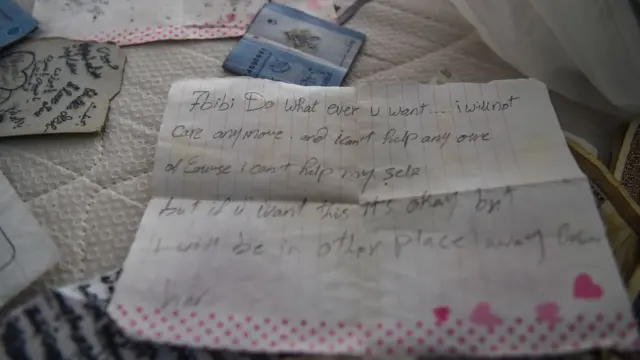 7bibi Do what ever u want.... i will not
care anymore. and i can't help any one
of Course i can't help my self
but if u want this it's okay but
i will be in other place away from
her